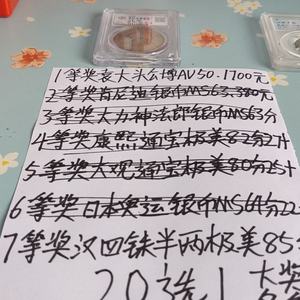 1等奖袁大头公博AU50.1700元
2等奖肯尼迪银币MS63.380元
3等奖大力神法郎银币MS63分
4等奖康熙通宝极美82分2寸
5等奖大观通宝极美80分25寸
6等奖日本奥运银币MS64分22
7等奖汉四铢半两极美85
20选1
大奖